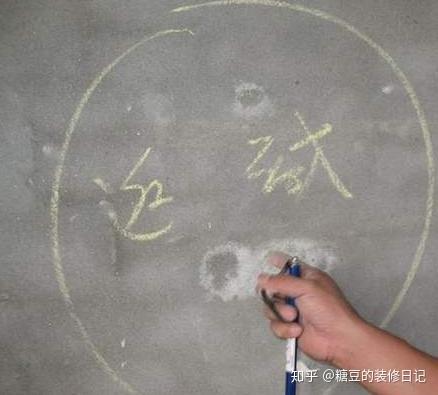 返碱
知乎 @糖豆的装修日记